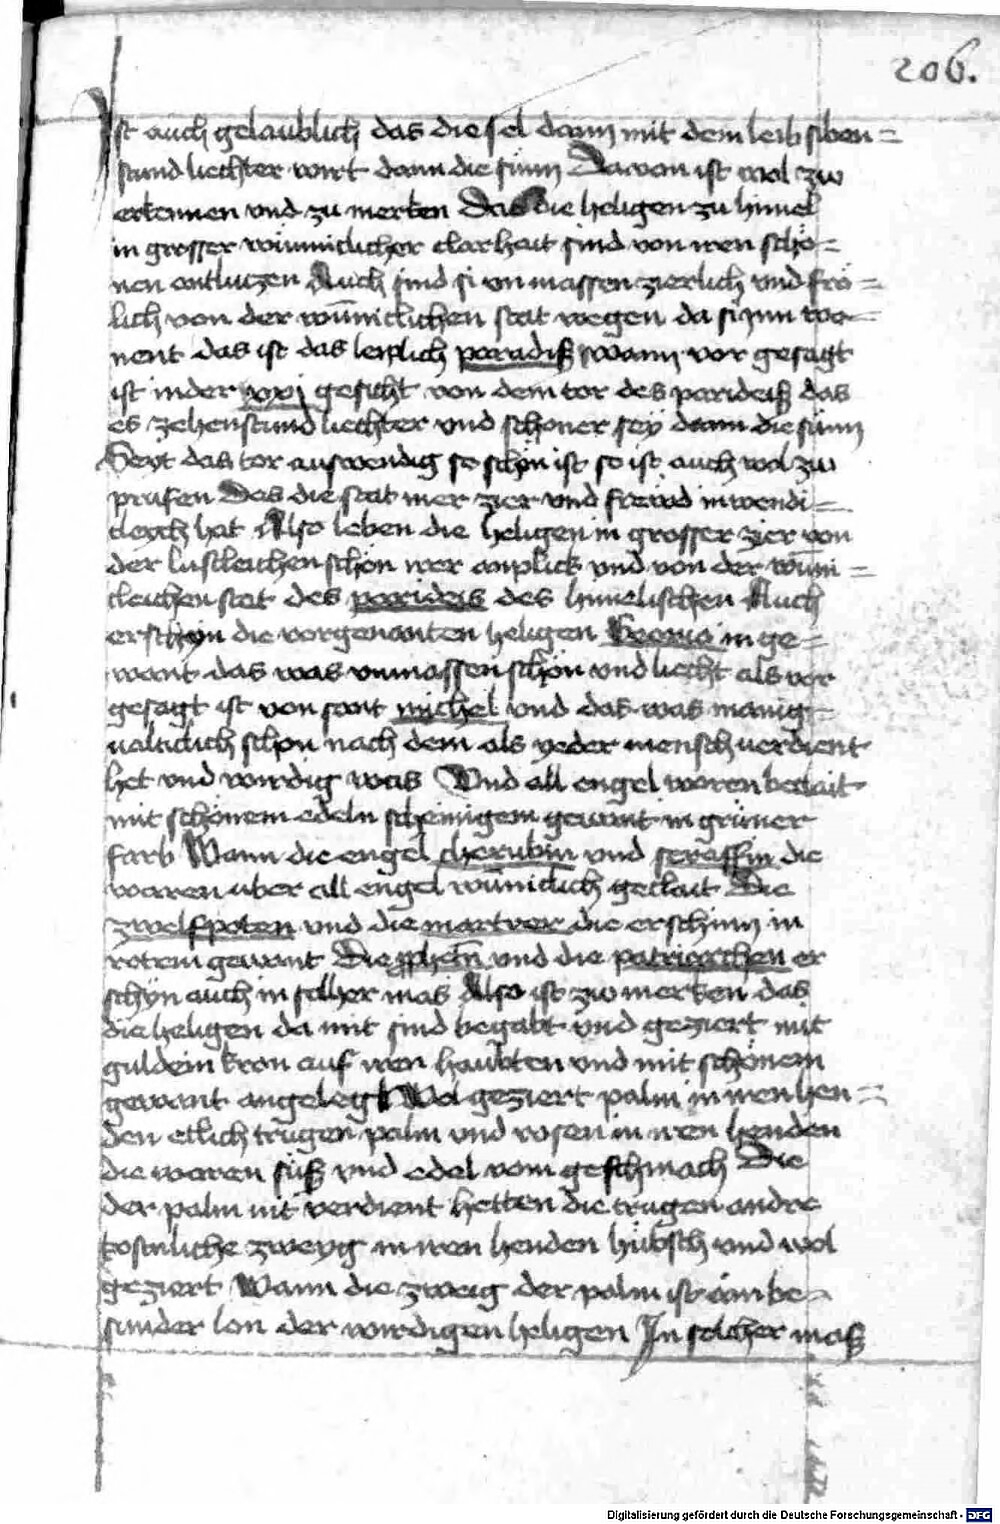 206.
Ist auch gelaublich das die sel dann mit dem leib siben=
stund liechter wirt dann die sunn Davon ist wol zw
erkennen vnd zu merken Das die heligen zu himel
in grosser wunniclicher clarhait sind von iren schö=
nen antluczen Auch sind si vn massen zierlich vnd frö=
lich von der wūniclichen stat wegen da si ynn wo=
nent das ist das leiplich paradiß Wann vor gesagt
ist in der xxj gesicht von dem tor des parideiß das
es zehenstund liechter vnd schöner sey dann die sunn
Seyt das tor auswendig so schön ist so ist auch wol zw
prüfen Das die stat mer zier vnd frewd inwendi=
cleych hat Also leben die heligen in grosser zier von
der lustleichen schön irer anplick vnd von der wūni=
cleichen stat des parideis des himelischen Auch
erschyn die vorgenanten heligen Georio in ge=
want das was vnmassen schön vnd liecht als vor
gesagt ist von sant michel vnd das was manig=
ualticlich schon nach dem als yeder mensch uerdient
het vnd wirdig was Vnd all engel waren beclait
mit schönem edeln scheinigem gewant in grüner
farb Wann die engel cherubin vnd seraffin die
waren vber all engel wūniclich geclait Die
zwelfpoten vnd die martrer die erschinn in
rotem gewant Die ꝓphetn̄ vnd die patriarchen er
schyn auch in solher mas Also ist zw merken das
die heligen da mit sind begabt vnd geziert mit
guldein kron auf iren haubten vnd mit schönem
gewant angelegt Wol geziert palm in iren hen=
den etlich trugen palm vnd rosen in iren henden
die waren süß vnd edel vom geschmach Die
der palm nit verdient hetten die trugen andre
kostnliche zweyg in iren henden hübsch vnd wol
geziert Wann die zweig der palm ist ain be=
sunder lon der wirdigen heligen In solcher maß
Digitalisierung gefördert durch die Deutsche Forschungsgemeinschaft - DFG